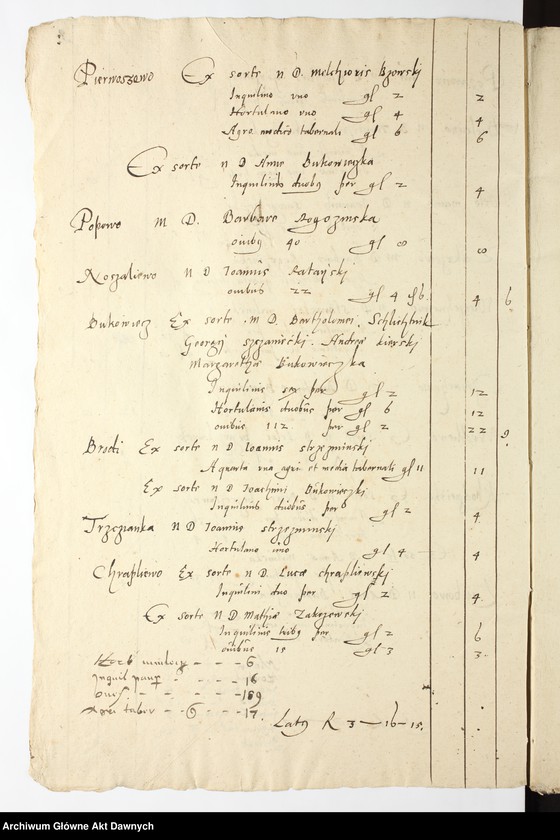 Pierwoszewo Ex sorte N D. Melchioris Bzowskj
Inquilino vno gl 2 2
Hortulano vno gl 4 4
Agro medio tabernali gl 6 6
Ex sorte N D Anne Bukowieczka
Inquilinis duobꝰ per gl 2 4
Popowo M D. Barbare Rogozinska
ouibꝰ 40 gl 8 8
Roszaliewo N D Ioannis
ouibus 22 gl 4 ꝭ 6 4 6
Bukowiecz Ex sorte M D. Bartholomei Schlichtink
Georgij Andreæ kierskj
Margarethæ Bukowieczka
Inquilinis sex per gl 2 12
Hortulanis duobus per gl 6 12
ouibus 112 per gl 2 22 9
Brodi Ex sorte N D Ioannis strzepinskj
A quarta vna agri et media tabernali gl 11 11
Ex sorte N D Ioachimi Bukowieczkj
Inquilinis duobus per gl 2 4
Trzczianka N D Ioannis strzepinskj
Hortulano vno gl 4 4
Chrapliewo Ex sorte N D. Lucæ chrapliewskj
Inquilini duo per gl 2 4
Ex sorte N D. Mathiæ Zakrzewskj
Inquilinis tribꝰ per gl 2 6
ouibus 15 gl 3 3
6
Inquil paup 16
oues 189
Agri taber 6 17
Latꝰ R 3 — 16 — 15.
Archiwum Główne Akt Dawnych